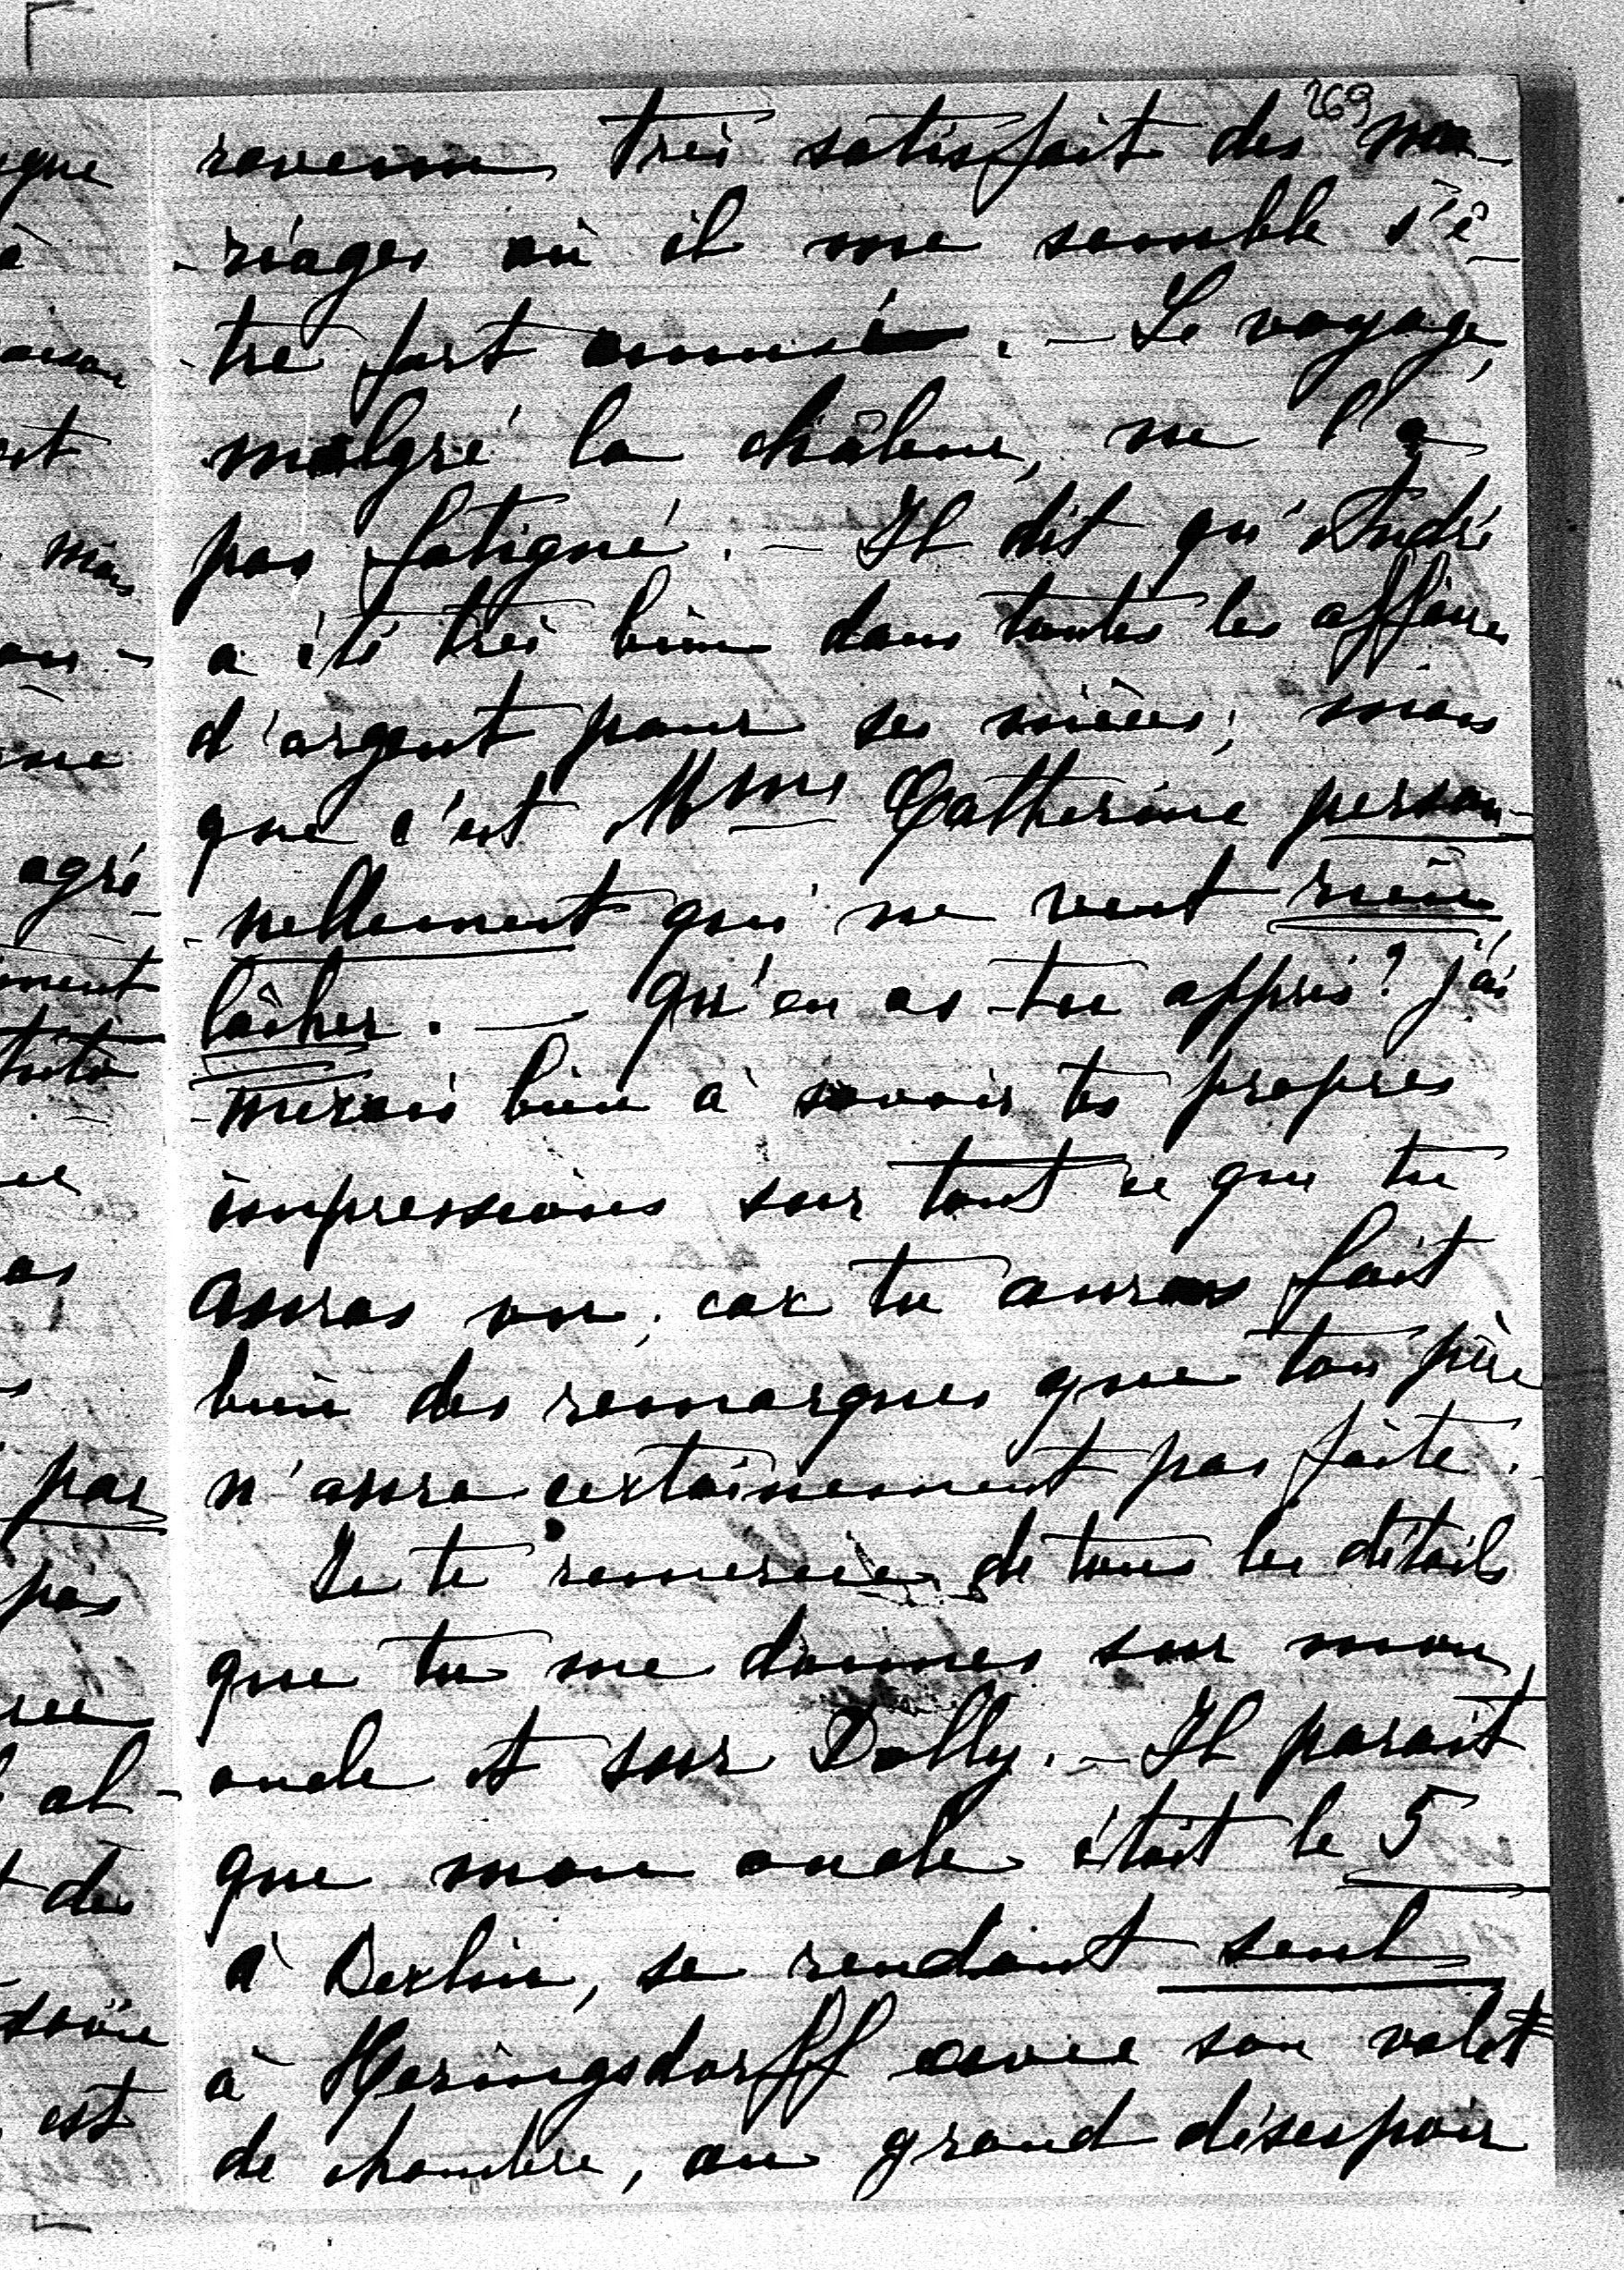 269
revenu très satisfait des ma-
-riages où il me semble s'ê-
-tre fort amusé. — Le voyage,
malgré la châleur, ne l'a
pas fatigué. — Il dit qu'André
a été très bien dans toutes les affaires
d'argent pour ses nièces; mais
que c'est Mme Catherine person-
-nellement qui ne veut rien
lâcher. — Qu'en as-tu appris? J'ai-
-merais bien à savoir tes propres
impressions sur tout ce que tu
auras vu; car tu auras fait
bien des remarques que ton père
n'aura certainement pas faite.
Je te remercie de tous les détails
que tu me donnes sur mon
oncle et sur Dolly. — Il parait
que mon oncle était le 5
à Berlin, se rendant seul
à Heringsdorff avec son valet
de chambre, au grand désespoir